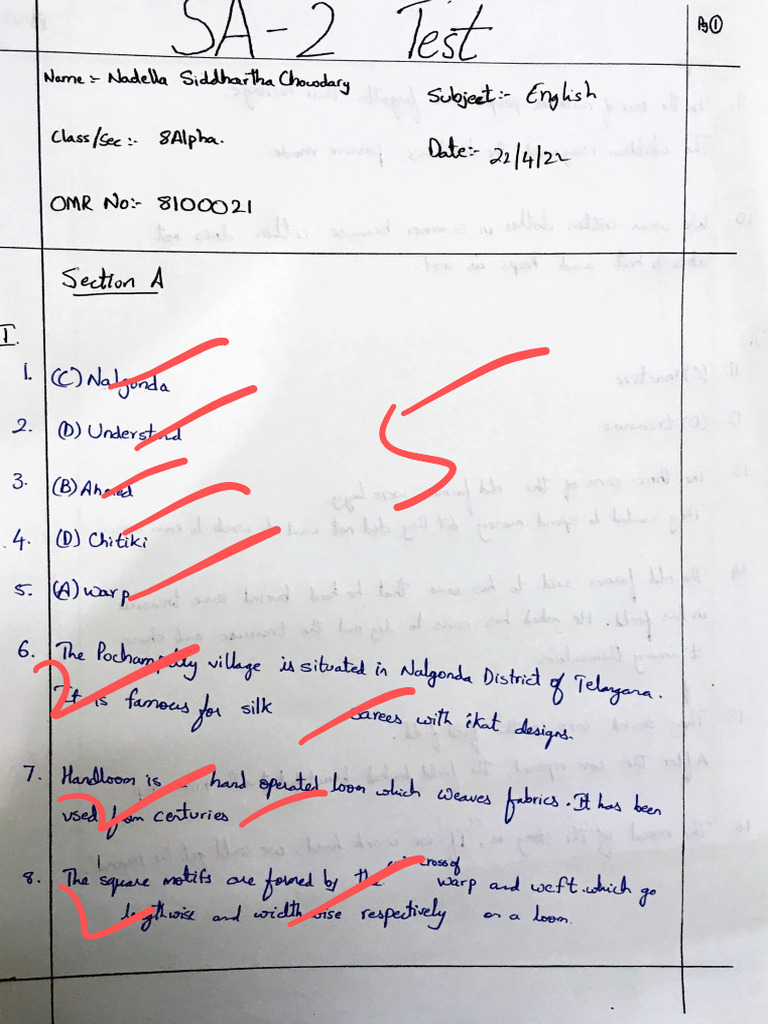 SA-2 Test
Pg ①
Name:- Nadella Siddhartha Chowdary
Subject:- English
Class/Sec:- 8Alpha.
Date:- 22/4/22
OMR No:- 8100021
Section A
I.
1. (C) Nalgonda
2. (D) Understand
3. (B) Ahmed
4. (D) Chitiki
5. (A) warp
5
6. The Pochampally village is situated in Nalgonda District of Telangana.
It is famous for silk sarees with ikat designs.
7. Handloom is a hand operated loom which weaves fabrics. It has been
used from centuries
8. The square motifs are formed by the cross of warp and weft. which go
lengthwise and width wise respectively on a loom.